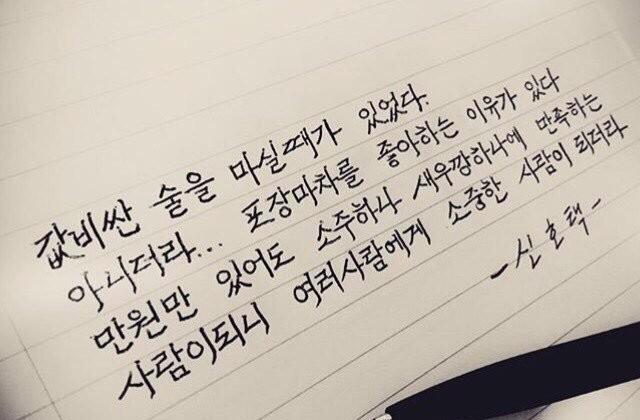 값비싼 술을 마실때가 있었다.
아니더라... 포장마차를 좋아하는 이유가 있다
만원만 있어도 소주하나 새우깡하나에 만족하는
사람이되니 여러사람에게 소중한 사람이 되더라
- 신호택 -